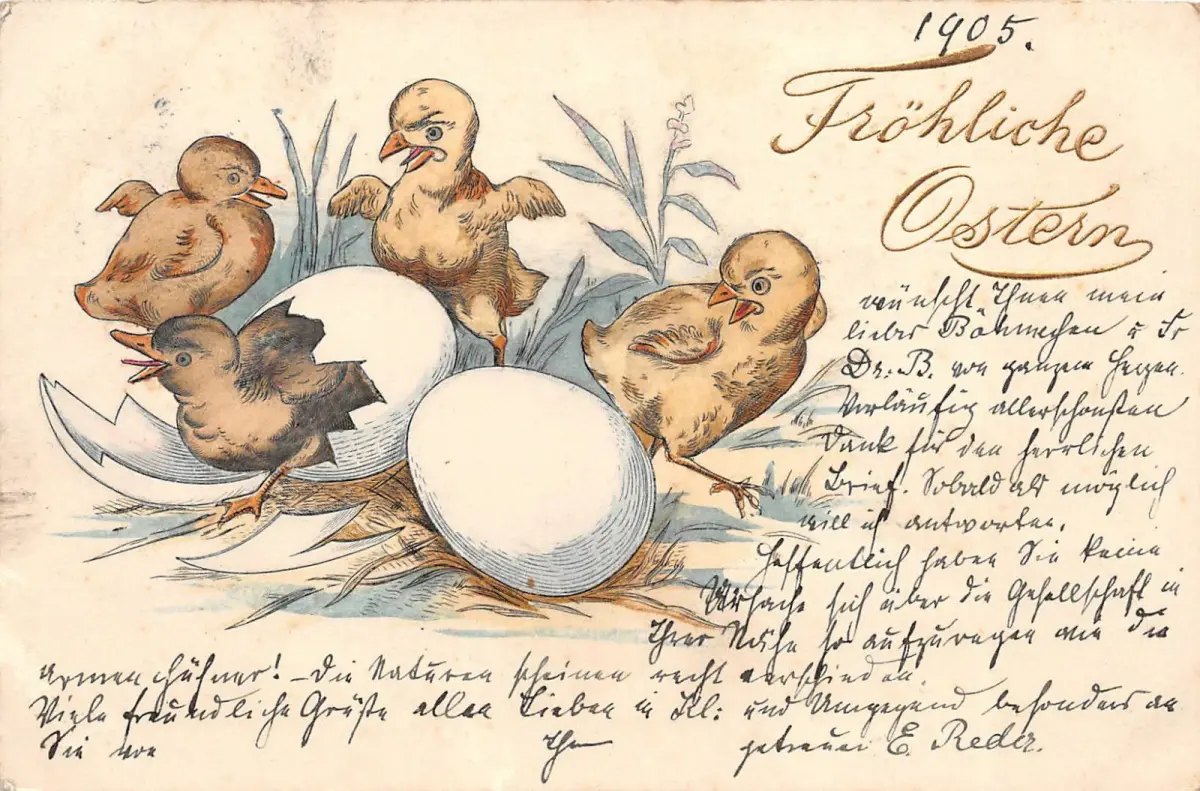 1905.
Fröhliche
Ostern
wünscht Ihnen mein
liebes u Fr
Dr. B. von ganzem Herzen.
Vorläufig allerschönsten
Dank für den herrlichen
Brief. Sobald als möglich
will ich antworten.
Hoffentlich haben Sie keine
Ursache sich über die Gesellschaft in
Ihrer Nähe so aufzuregen wie die
armen Hühner! – Die Naturen scheinen recht verschieden.
Viele freundliche Grüße allen Lieben in Kl: und Umgegend besonders an
Sie von Ihr getreuer E. Reder.